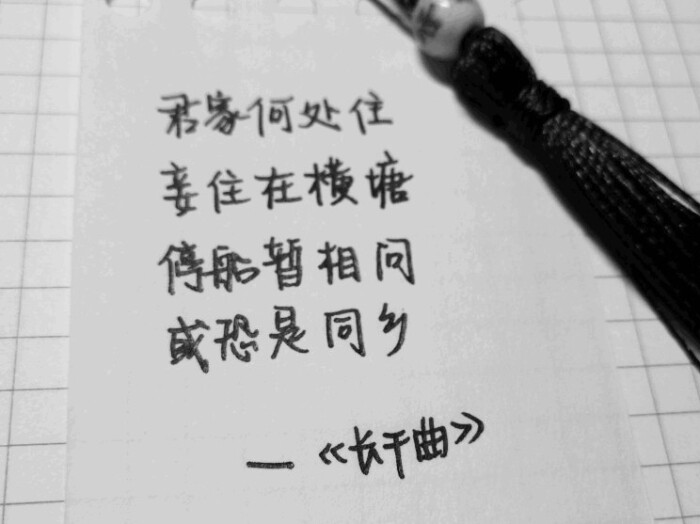 君家何处住
妾住在横塘
停船暂相问
或恐是同乡
—《长干曲》